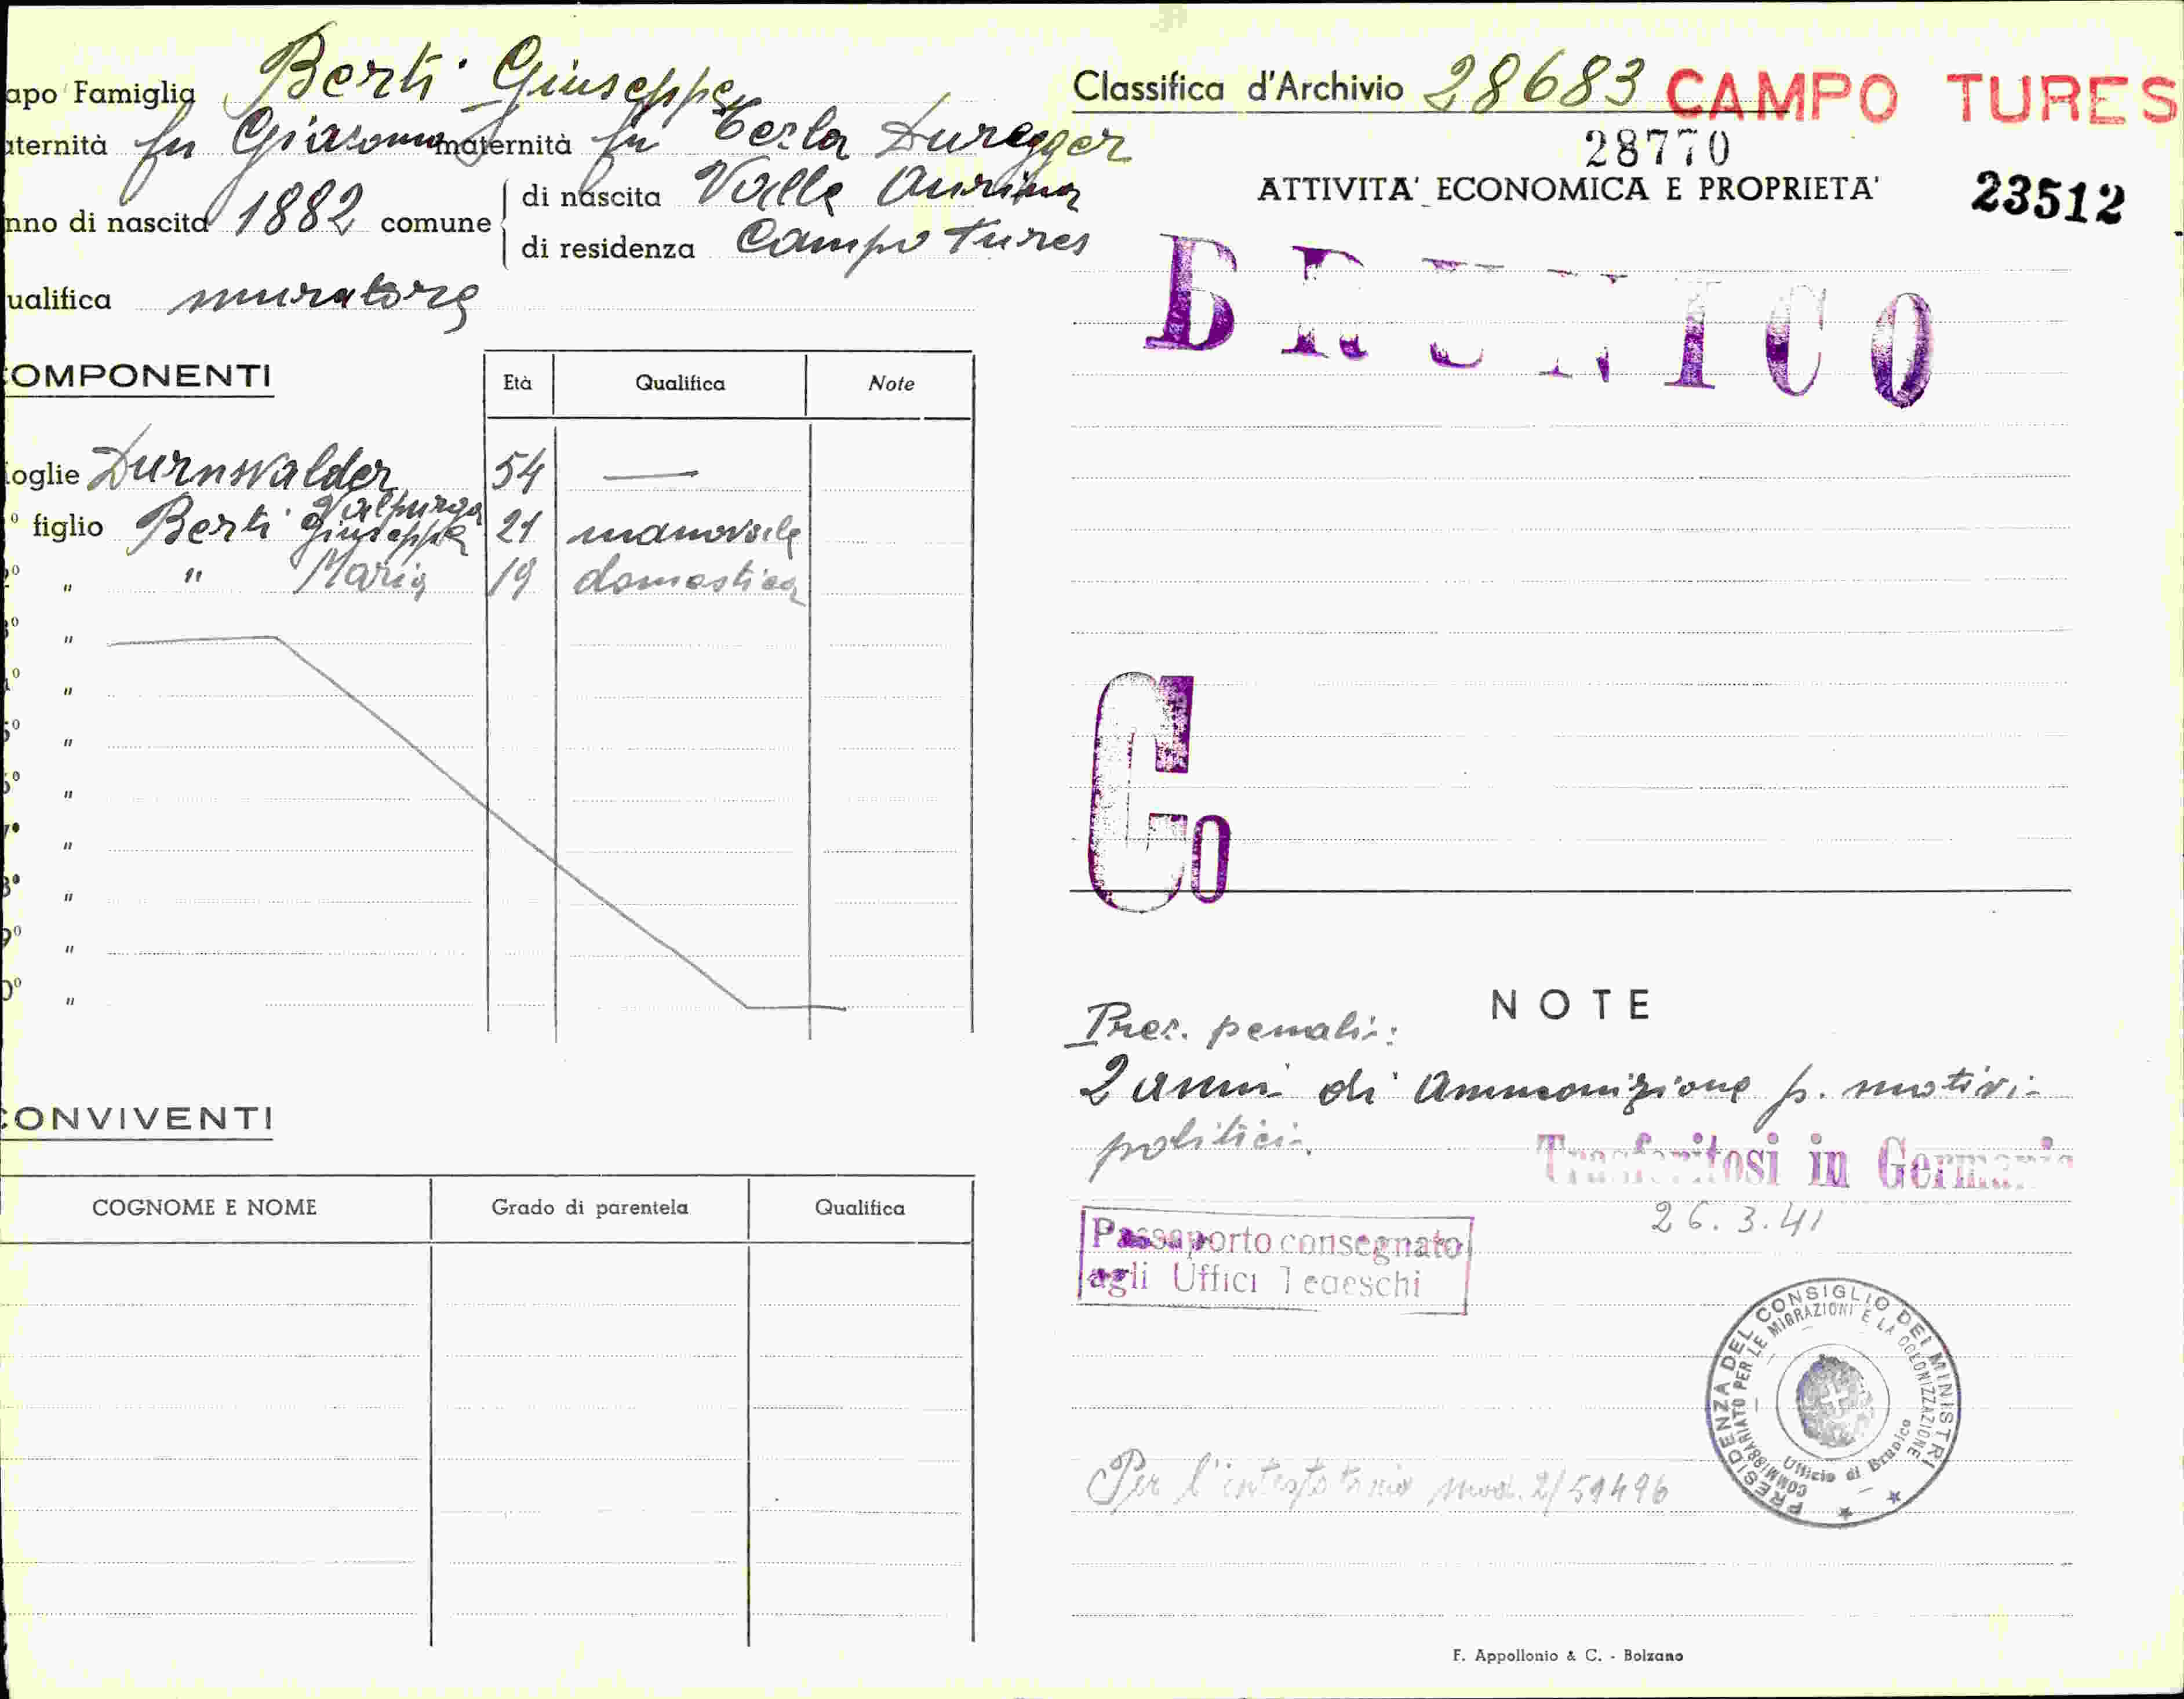 apo Famiglia Berti Giuseppe
aternità fu Giacomo maternità fu Duregger
nno di nascita 1882 comune di nascita Valle Aurina
di residenza Campo Tures
ualifica muratore
COMPONENTI Età Qualifica Note
oglie Durnwalder Valpurga 54 —
º figlio Berti Giuseppe 21 manovale
2º " " Maria 19 domestica
3º "
4º "
5º "
6º "
7º "
8º "
9º "
0º "
CONVIVENTI
COGNOME E NOME Grado di parentela Qualifica
Classifica d'Archivio 28683 CAMPO TURES
28770
ATTIVITA' ECONOMICA E PROPRIETA' 23512
BRUNICO
Co
NOTE
Prec. penali:
2 anni di Ammonizione p. motivi
politici.
Trasferitosi in Germania
26.3.41
Passaporto consegnato
agli Uffici Tedeschi
PRESIDENZA DEL CONSIGLIO DEI MINISTRI
COMMISSARIATO PER LE MIGRAZIONI E LA COLONIZZAZIONE
Ufficio di Brunico
Per l'intestatario mod. 2/59496
F. Appollonio & C. - Bolzano